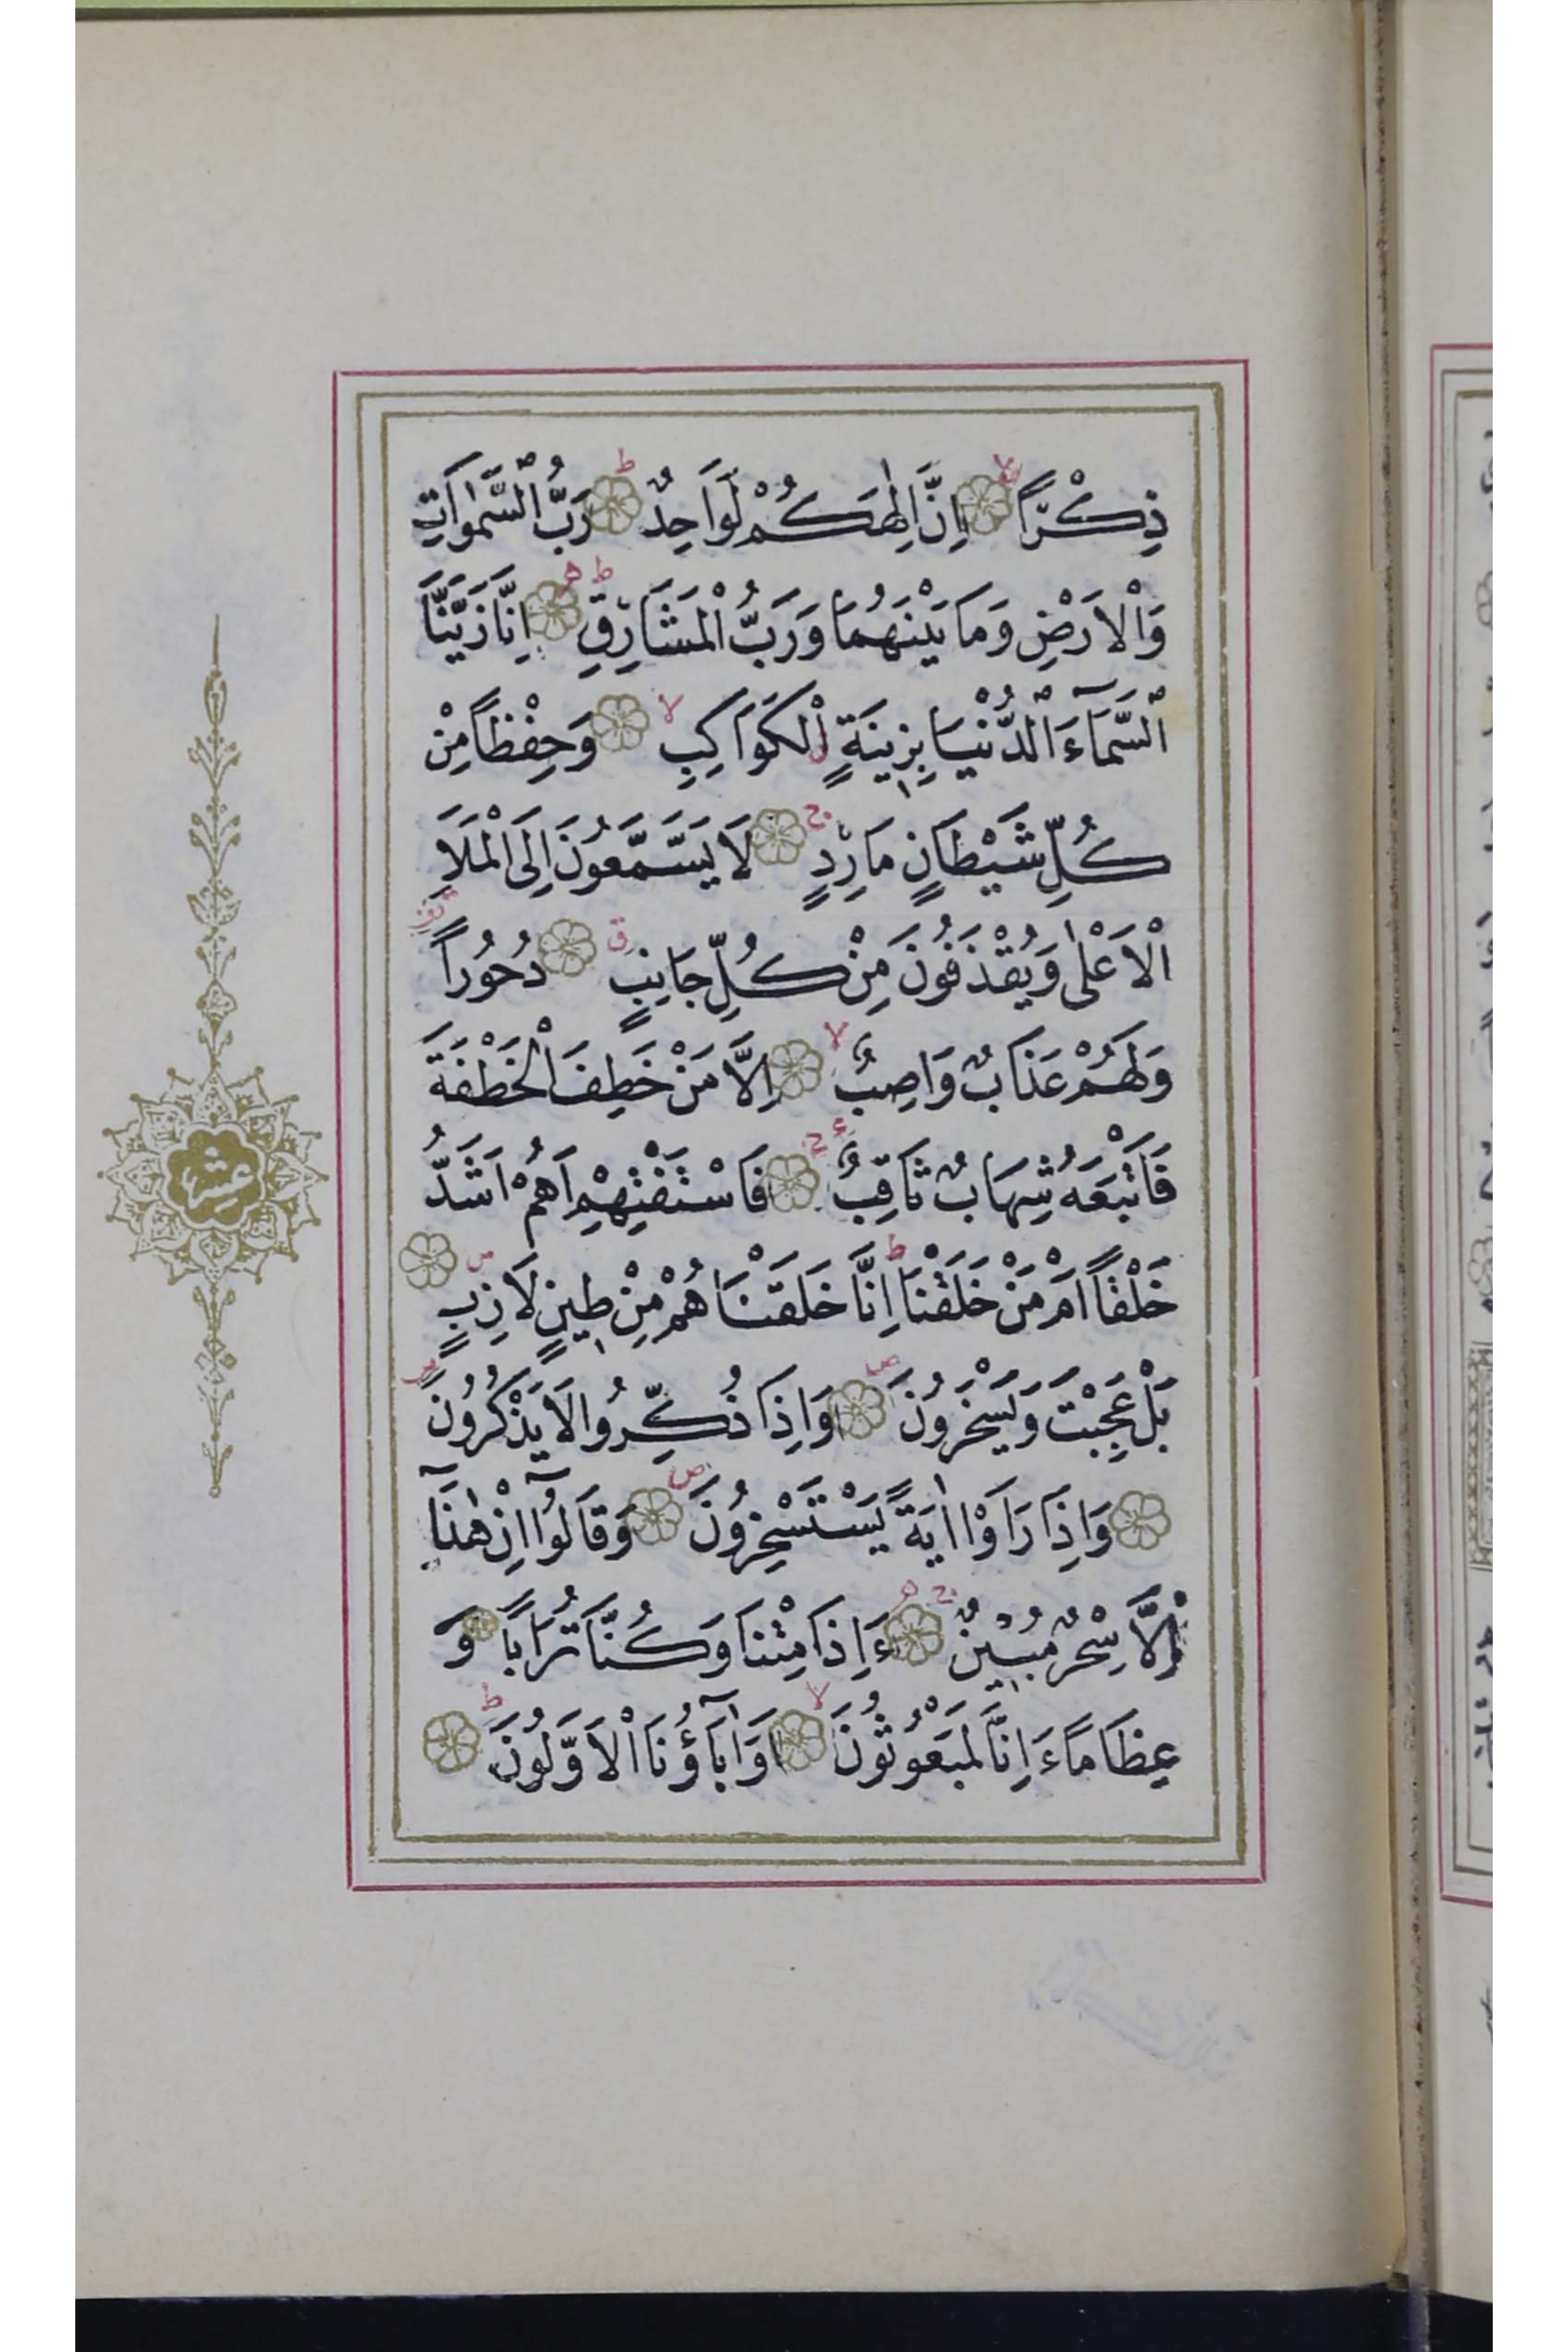 ذِكْرًا اِنَّ اِلٰهَكُمْ لَوَاحِدٌ رَبُّ السَّمٰوَاتِ
وَالْاَرْضِ وَمَا بَيْنَهُمَا وَرَبُّ الْمَشَارِقِ اِنَّا زَيَّنَّا
السَّمَآءَ الدُّنْيَا بِزِينَةٍ الْكَوَاكِبِ وَحِفْظًا مِنْ
كُلِّ شَيْطَانٍ مَارِدٍ لَا يَسَّمَّعُونَ اِلَى الْمَلَاِ
الْاَعْلٰى وَيُقْذَفُونَ مِنْ كُلِّ جَانِبٍ دُحُورًا
وَلَهُمْ عَذَابٌ وَاصِبٌ اِلَّا مَنْ خَطِفَ الْخَطْفَةَ
فَاَتْبَعَهُ شِهَابٌ ثَاقِبٌ فَاسْتَفْتِهِمْ اَهُمْ اَشَدُّ
خَلْقًا اَمْ مَنْ خَلَقْنَا اِنَّا خَلَقْنَاهُمْ مِنْ طِينٍ لَازِبٍ
بَلْ عَجِبْتَ وَيَسْخَرُونَ وَاِذَا ذُكِّرُوا لَا يَذْكُرُونَ
وَاِذَا رَاَوْا اٰيَةً يَسْتَسْخِرُونَ وَقَالُوٓا اِنْ هٰذَآ
اِلَّا سِحْرٌ مُبِينٌ ءَاِذَا مِتْنَا وَكُنَّا تُرَابًا وَ
عِظَامًا ءَاِنَّا لَمَبْعُوثُونَ اَوَاٰبَآؤُنَا الْاَوَّلُونَ
عشر